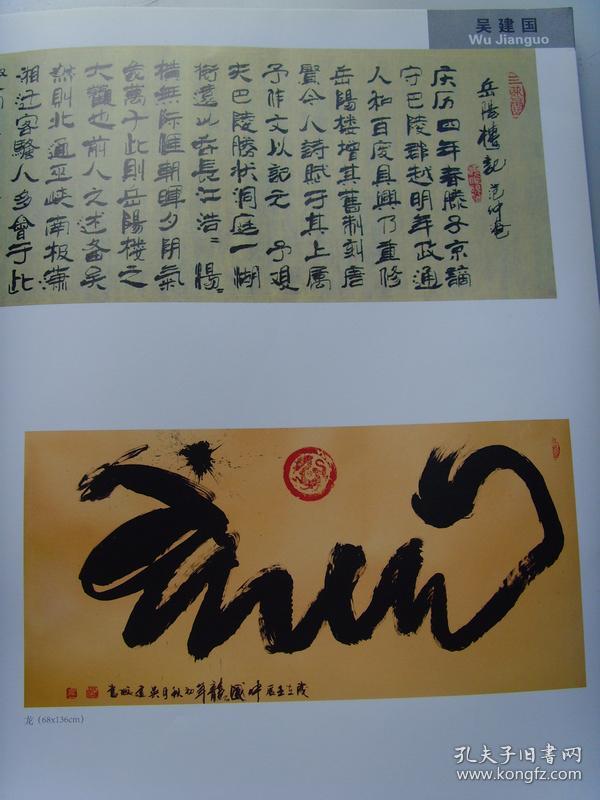 吴建国
Wu Jianguo
岳陽樓記 范仲淹
庆历四年春滕子京謫
守巴陵郡越明年政通
人和百废具興乃重修
岳陽楼增其舊制刻唐
賢今人詩賦于其上属
予作文以記之 予观
夫巴陵勝状洞庭一湖
銜遠山吞長江浩〻湯〻
横無际涯朝暉夕阴氣
象萬千此則岳陽楼之
大觀也前人之述备矣
然則北通巫峡南极潇
湘迁客騷人多會于此
歲在壬辰中國龍年初秋月吴建國書
龙（68x136cm）
孔夫子旧书网
www.kongfz.com